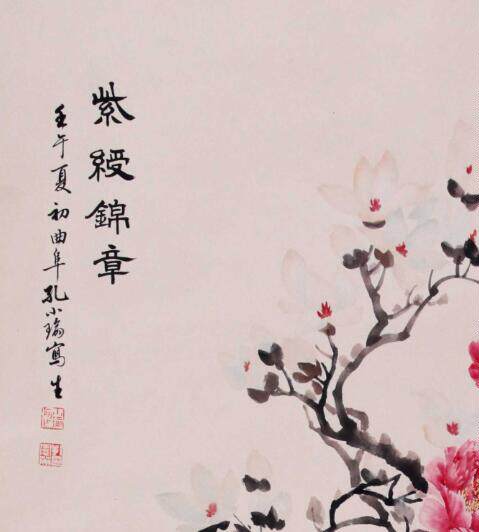 紫綬錦章
壬午夏初曲阜孔小瑜寫生